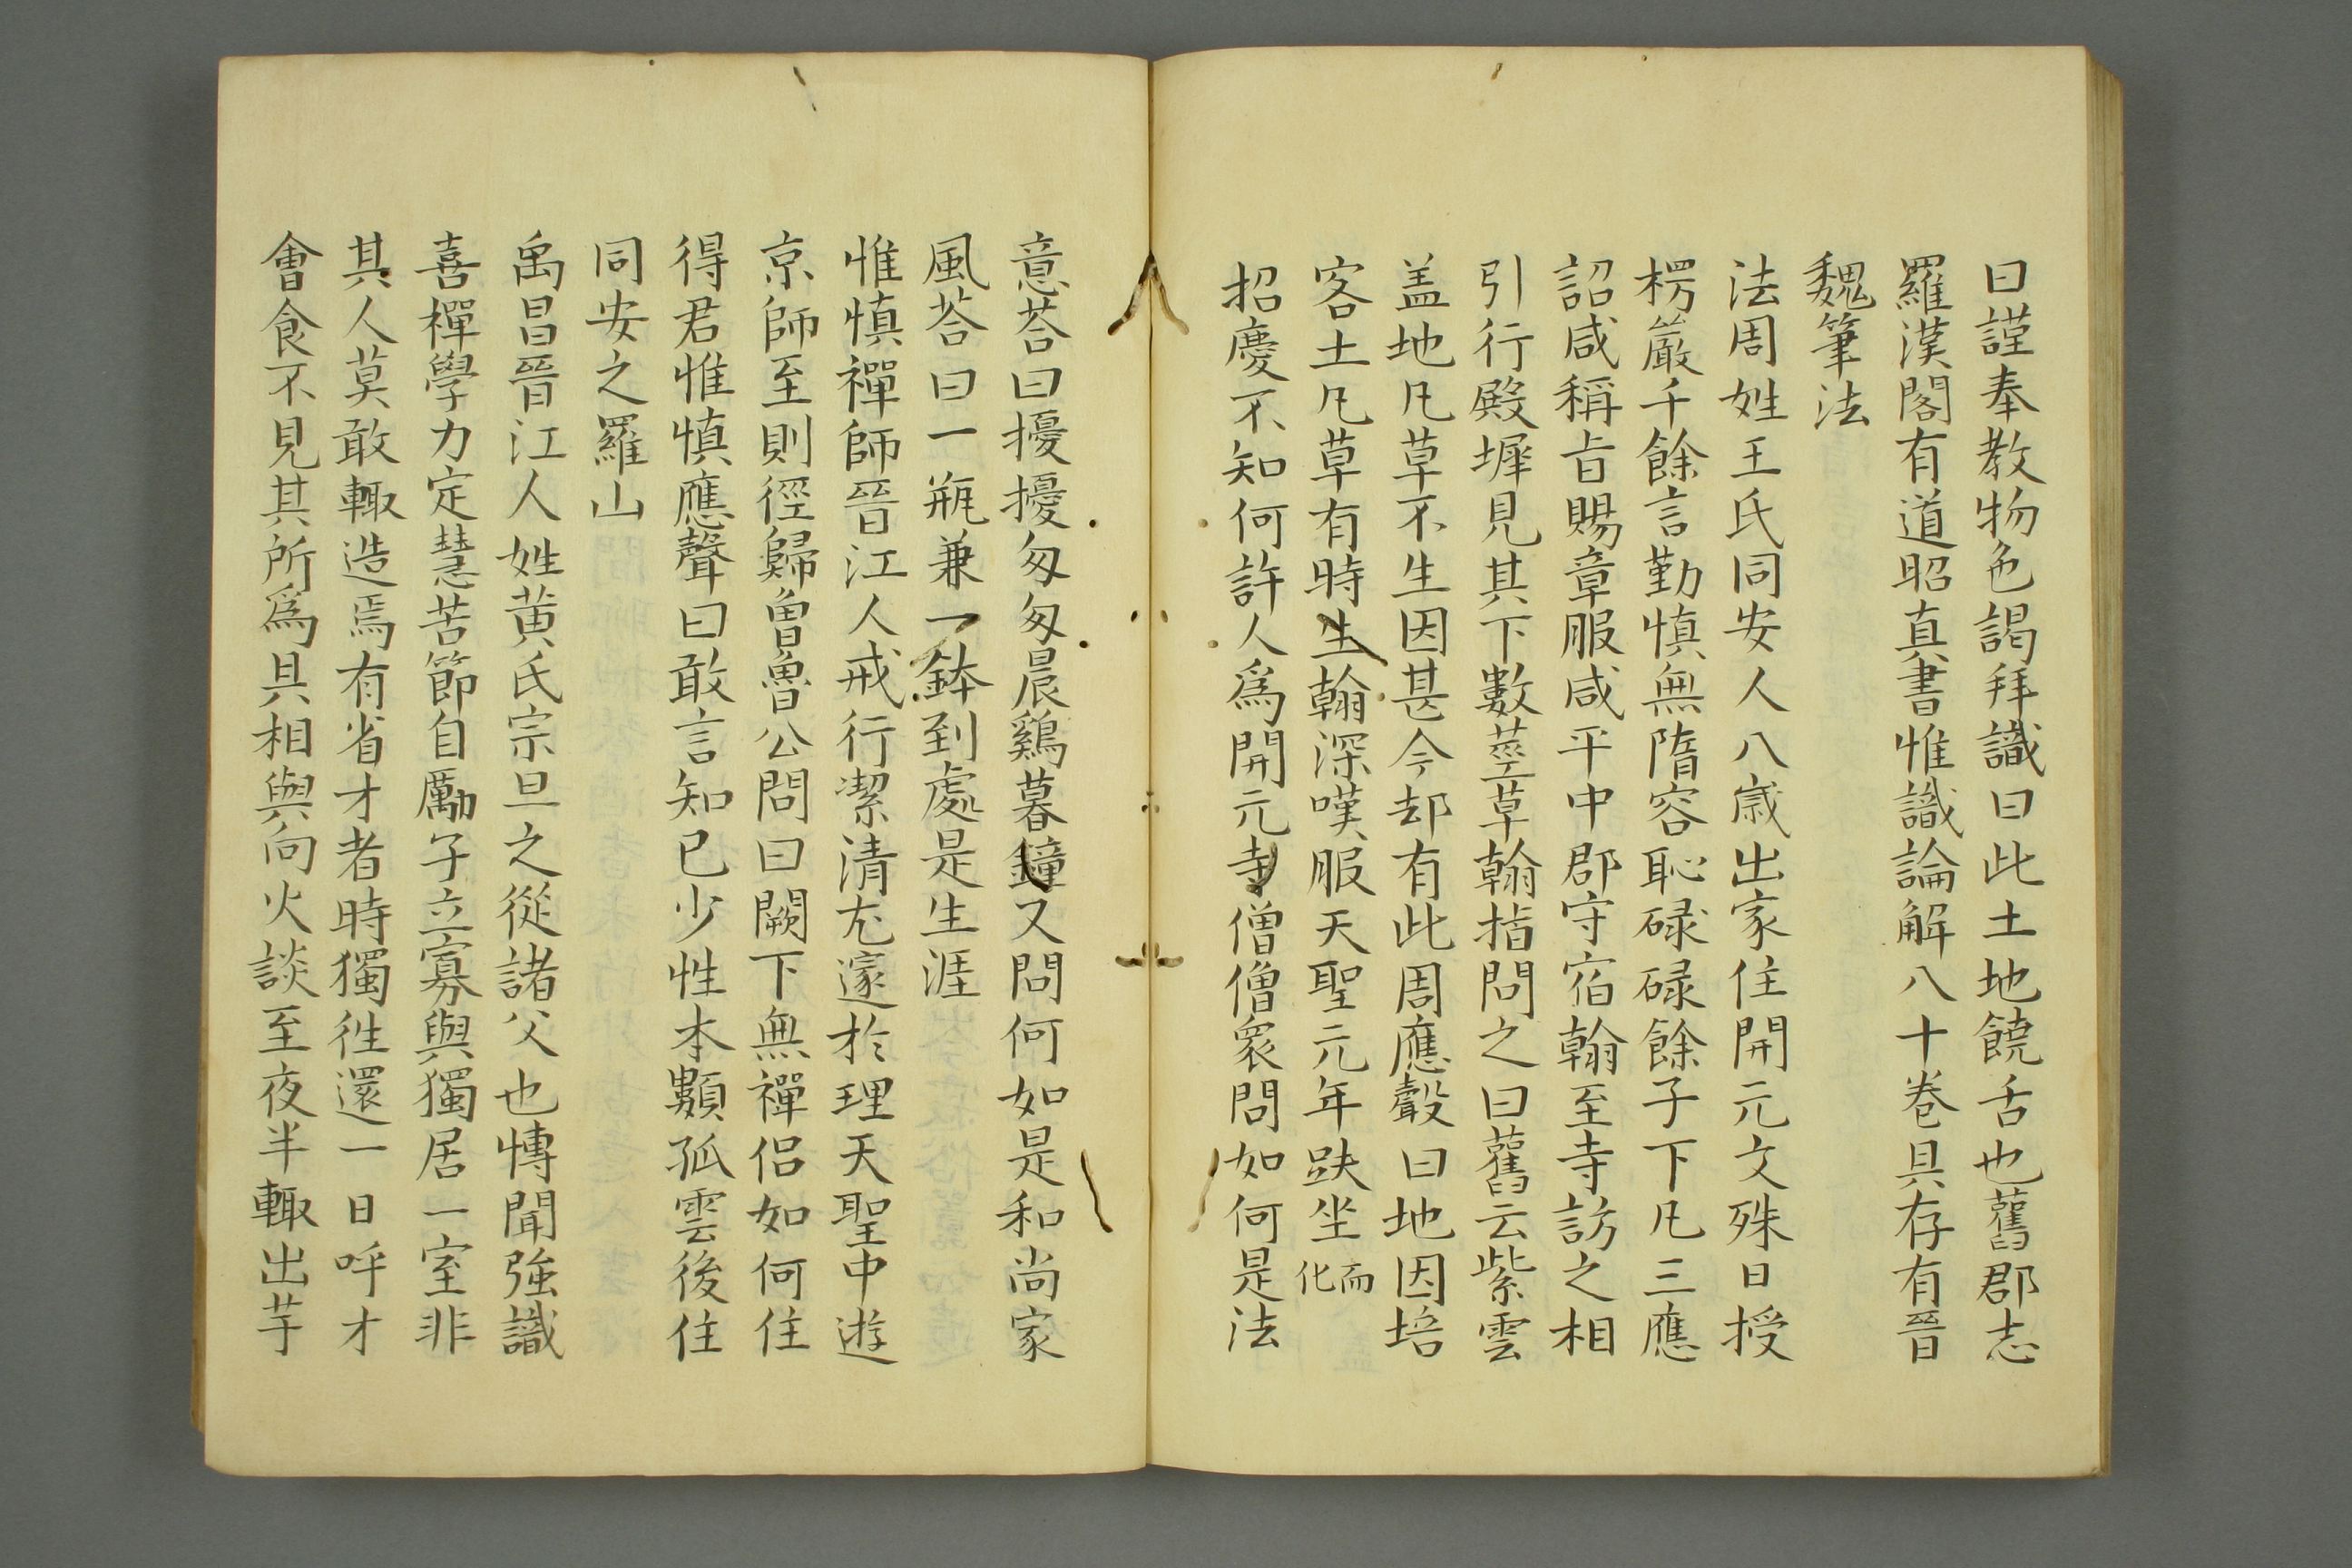 曰謹奉教物色謁拜識曰此土地饒舌也舊郡志
羅漢閣有道昭真書惟識論解八十卷具存有晉
魏筆法
法周姓王氏同安人八歲出家住開元文殊日授
楞嚴千餘言勤慎無隋容恥碌碌餘子下凡三應
詔咸稱旨賜章服咸平中郡守宿翰至寺訪之相
引行殿墀見其下數莖草翰指問之曰舊云紫雲
盖地凡草不生因甚今却有此周應聲曰地因培
客土凡草有時生翰深嘆服天聖元年趺坐而化
招慶不知何許人爲開元寺僧僧衆問如何是法
意荅曰擾擾匆匆晨鷄暮鐘又問何如是和尚家
風荅曰一瓶兼一鉢到處是生涯
惟慎禪師晉江人戒行潔清尤邃於理天聖中遊
京師至則徑歸曾魯公問曰闕下無禪侶如何住
得君惟慎應聲曰敢言知已少性本顥孤雲後住
同安之羅山
禹昌晉江人姓黄氏宗旦之從諸父也慱聞強識
喜禪學力定慧苦節自勵孑立寡與獨居一室非
其人莫敢輙造焉有省才者時獨徃還一日呼才
會食不見其所爲具相與向火談至夜半輙出芋